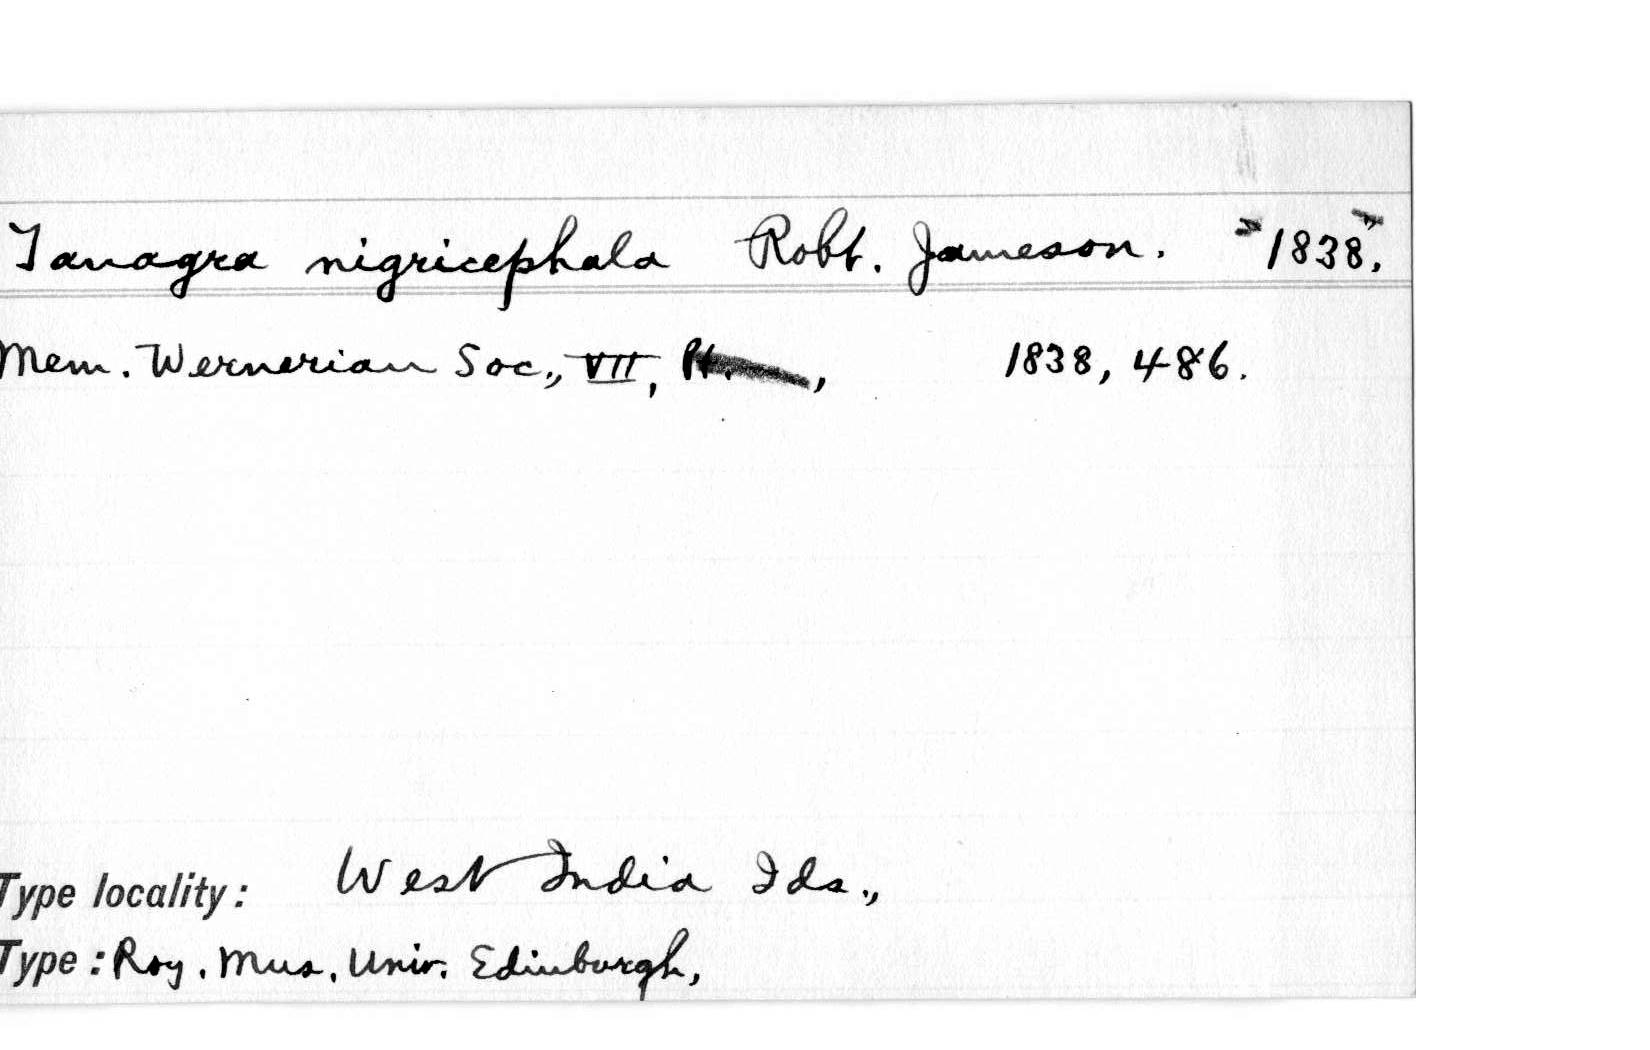 Tanagra nigricephala Robt. Jameson. "1838",
Mem. Wernerian Soc., VII, Pt. , 1838, 486.
Type locality: West India Ids.,
Type: Roy. Mus. Univ. Edinburgh,